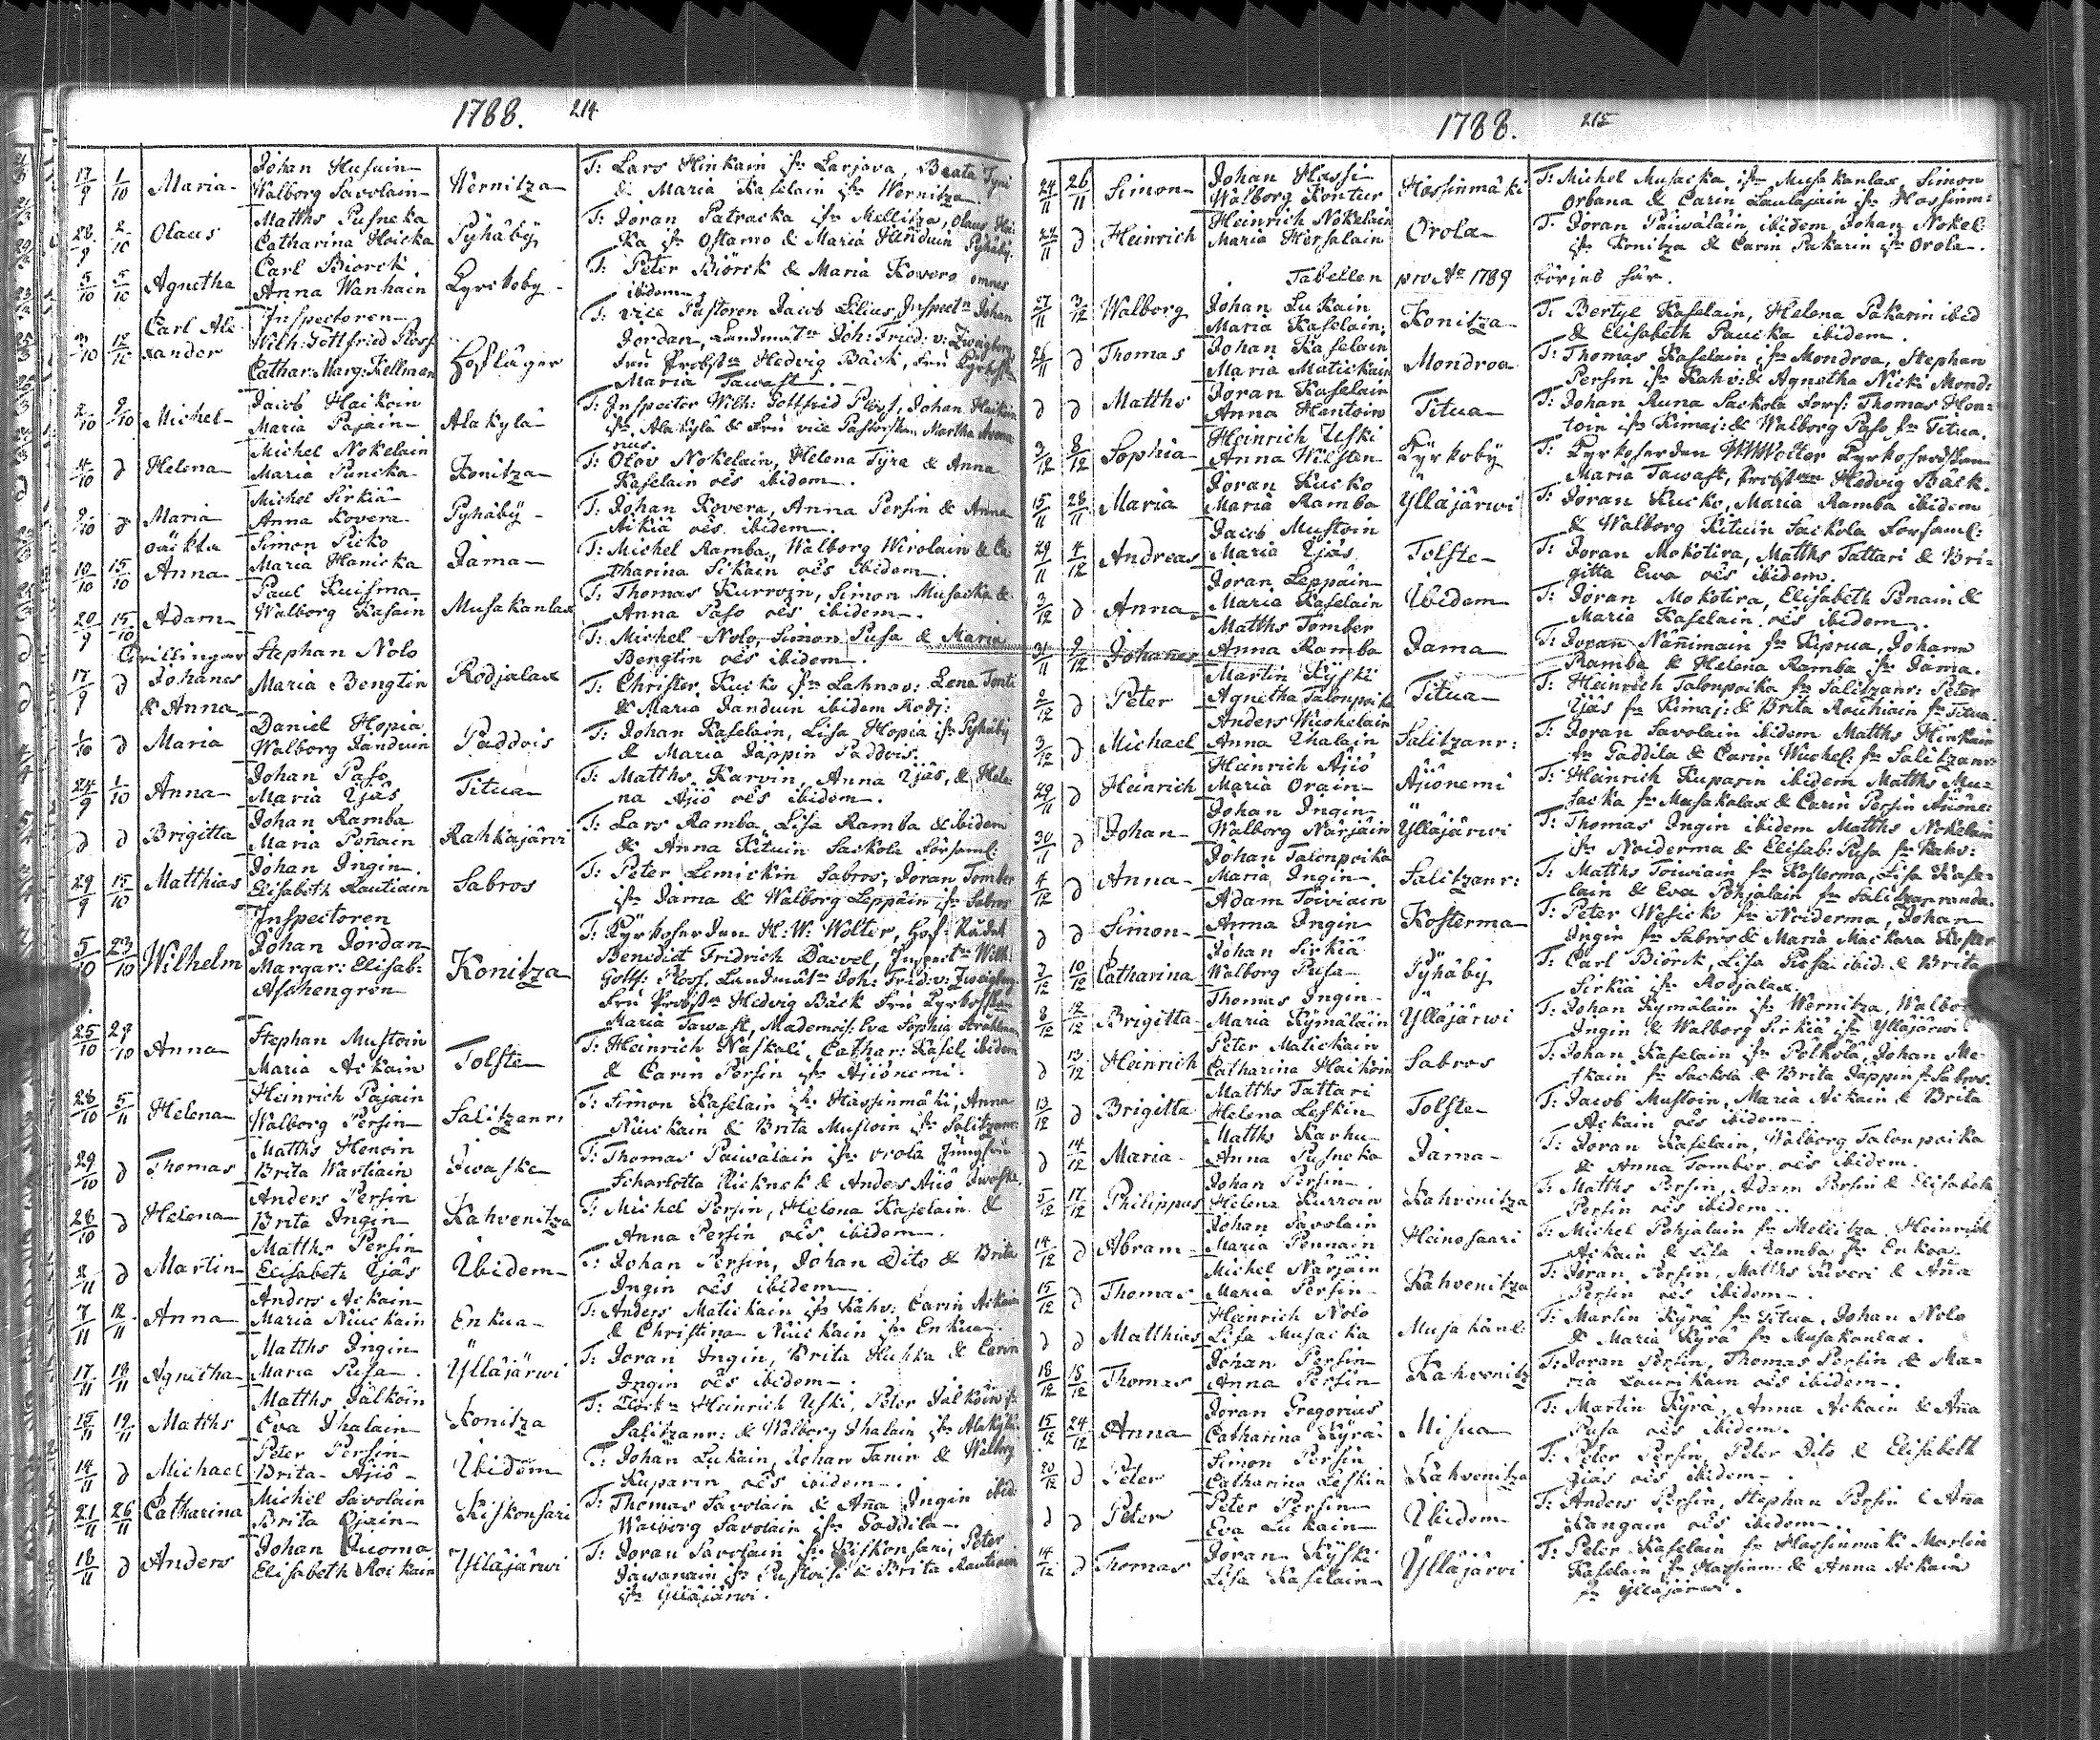 1788. 214
17/9 1/10 Maria Johan Husuin Wernitza T: Lars Hinkain fr. Larjava, Beata Tyni
Walborg Savolain & Maria Kaselain fr. Wernitza
28/9 2/10 Olaus Matths Pusneka Pyhäby T: Joran Patracka fr. Mellitza, Olaus Hoi-
Catharina Hoicka ka fr. Ostamo & Maria Handuin Pyhäby.
5/10 5/10 Agnetha Carl Biorck Kyrckoby T: Peter Biörck & Maria Kovero omnes
Anna Wanhain ibidem
3/10 12/10 Carl Ale- Inspectoren T: vice Pastoren Jacob Lilius, Inspect. Johan
xander Wilh: Gottfried Ploof Hoflager Jordan, Landmät. Joh: Fried: v: Zweigberg
Cathar: Marg: Kellman Fru Probst. Hedvig Bäck, Fru Kyrkoh.
Maria Tawast
2/10 9/10 Michel Jacob Haikoin Alakylä T: Inspector Wilh: Gottfrid Ploof, Johan Haikoin
Maria Pajain fr. Alakylä & Fru vice Pastorskan Martha
4/10 d Helena Michel Nokelain Konitza T: Olov Nokelain, Helena Tyra & Anna
Maria Puncka Kaselain oês ibidem.
9/10 d Maria Michel Sirkiä Pyhäby T: Johan Kovera, Anna Persin & Anna
Anna Kovera Aikiä oês ibidem.
oäckta
10/10 15/10 Anna Simon Picko Jama T: Michel Ramba, Walborg Wirolain & Ca-
Maria Hanicka tharina Sikain oês ibidem.
20/9 15/10 Adam Paul Kuisma Musakanlax T: Thomas Kurroin, Simon Musacka &
Walborg Kasain Anna Paso oês ibidem.
Tvillingar Stephan Nolo T: Michel Nolo, Simon Pusa & Maria
17/9 d Johanes Maria Bengtin Rodjalax Bengtin oês ibidem.
& Anna T: Christer Kucko fr. Lahnav: Lena Tonti
& Maria Janduin ibidem Rodj:
1/10 d Maria Daniel Hopia Paddois T: Johan Kaselain, Lisa Hopia fr. Pyhäby
Walborg Janduin & Maria Jäppin Paddois.
24/9 1/10 Anna Johan Paso Titua T: Matths Karvin, Anna Ijäs, & Hele-
Maria Ijäs na Ajiö oês ibidem.
d d Brigitta Johan Ramba Rahkajärvi T: Lars Ramba, Lisa Ramba & ibidem
Maria Poñain & Anna Kituin Sackola Forsaml:
29/9 15/10 Matthias Johan Ingin Sabros T: Peter Lemickin Sabros, Joran Tomber
Elisabeth Rautiain fr. Jama & Walborg Leppäin fr. Sabros
5/10 23/10 Wilhelm Inspectoren Konitza T: Kyrkoherden H: W: Wolter, Hof-Rådet
Johan Jordan Benedict Fridrich Daevel, Inspect. Wilh:
Margar: Elisab: Gottf: Ploof, Landmät. Joh: Frid: v: Zweigberg
Aschengren Fru Probst. Hedvig Bäck Fru Kyrkoh.
Maria Tawast, Mademois: Eva Sophia
25/10 29/10 Anna Stephan Mustoin Tolste T: Heinrich Naskali, Cathar: Kasel: ibidem
Maria Ackain & Carin Persin fr. Ajiönemi.
28/10 5/11 Helena Heinrich Pajain Salitzanr: T: Simon Kaselain fr. Hassinmäki, Anna
Walborg Persin Niuckain & Brita Mustoin fr. Salitzanr:
29/10 d Thomas Matths Henoin Iwaska T: Thomas Paiwäläin fr. Orola Jungfru
Brita Wartiain Scharlotta & Anders Ajiö Iwaska
28/10 d Helena Anders Persin Kahvenitza T: Michel Persin, Helena Kaselain &
Brita Ingin Anna Persin oês ibidem.
2/11 d Martin Matths Persin Ibidem T: Johan Persin, Johan Dito & Brita
Elisabeth Ijäs Ingin oês ibidem
7/11 12/11 Anna Anders Ackain Enkua T: Anders Matickain fr. Kahv: Carin Ackain
Maria Niuckain & Christina Niuckain fr. Enkua.
17/11 18/11 Agnetha Matths Ingin Ylläjärwi T: Joran Ingin, Brita Hupka & Carin
Maria Pusa Ingin oês ibidem
15/11 19/11 Matths Matths Jälköin Konitza T: Heinrich Uski, Peter Jalkoin fr.
Eva Ihalain Salitzanr: & Walborg Ihalain fr. Alakylä
14/11 d Michael Peter Persin Ibidem T: Johan Lukain, Johan Tanin & Walborg
Brita Ajiö Kuparin oês ibidem.
21/11 26/11 Catharina Michel Savolain Kiskonsari T: Thomas Savolain & Aña Ingin ibid:
Brita Ojain Walborg Savolain fr. Paddila
18/11 d Anders Johan Kuoma Ylläjärwi T: Joran Savolain fr. Kiskonsari, Peter
Elisabeth Roickain Jawanain fr. & Brita Rautiain
fr. Ylläjärwi.
1788. 215
24/11 26/11 Simon Johan Hassi Hassinmäki T: Michel Musacka fr. Musakanlax, Simon
Walborg Kontur Orbana & Carin Laulajain fr. Hassinm:
24/11 d Heinrich Heinrich Nokelain Orola T: Joran Päiwäläin ibidem, Johan Nokel:
Maria Hersalain fr. Konitza & Carin Pakarin fr. Orola.
Tabellen pro Ao 1789 börjas här.
27/11 3/12 Walborg Johan Lukain Konitza T: Bertil Kaselain, Helena Pakarin ibid
Maria Kaselain & Elisabeth Paucka ibidem.
26/11 d Thomas Johan Kaselain Mondroa T: Thomas Kaselain fr. Mondroa, Stephan
Maria Matickain Persin fr. Kahv: & Agnetha Nicki Mond:
d d Matths Joran Kaselain Titua T: Johan Runa Sackola Fors: Thomas Hon-
Anna Hontoin toin fr. Kimaj: & Walborg Paso fr. Titua.
3/12 8/12 Sophia Heinrich Uski Kyrkoby T: Kyrkoherden Wolter Kyrkoherdskan
Anna Wilsten Maria Tawast, Probst. Hedvig Bäck.
15/11 28/11 Maria Joran Kucko Ylläjärwi T: Joran Kucko, Maria Ramba ibidem
Maria Ramba & Walborg Kituin Sackola Forsaml:
29/11 4/12 Andreas Jacob Mustoin Tolste T: Joran Mokotira, Matths Tattari & Bri-
Maria Ijäs gitta Ewa oês ibidem.
3/12 d Anna Joran Leppäin Ibidem T: Joran Mokotira, Elisabeth Penain &
Maria Kaselain Maria Kaselain oês ibidem.
31/11 9/12 Johañes Matths Tomber Jama T: Joran Näñimain fr. Kiprua, Johann
Anna Ramba Ramba & Helena Ramba fr. Jama.
2/12 d Peter Martin Kyski Titua T: Heinrich Talonpoika fr. Salitzanr: Peter
Agnetha Talonpoika Ijäs fr. Kimaj: & Brita Rouhiain fr. Titua.
3/12 d Michael Anders Wuohelain Salitzanr: T: Joran Savolain ibidem Matths Hinkain
Anna Ihalain fr. Paddila & Carin Wuohel: fr. Salitzanr:
29/11 d Heinrich Heinrich Ajiö Ajiönemi T: Heinrich Kuparin ibidem Matths Mu-
Maria Orain sacka fr. Musakalax & Carin Persin Ajiöne:
30/11 d Johan Johan Ingin Ylläjärwi T: Thomas Ingin ibidem Matths Nokelain
Walborg Närjäin fr. Noiderma & Elisab: Pusa fr. Kahv:
4/12 d Anna Johan Talonpoika Salitzanr: T: Matths Touviain fr. Kosterma, Lisa Kase-
Maria Ingin lain & Eva Pohjalain fr. Salitzanranda.
d d Simon Adam Töiviain Kosterma T: Peter Wesicko fr. Noiderma, Johan
Anna Ingin Ingin fr. Sabros & Maria Mackara Koster
7/12 10/12 Catharina Johan Sirkiä Pyhäby T: Carl Biörck, Lisa Pusa ibid: & Brita
Walborg Pusa Sirkiä fr. Rodjalax.
8/12 12/12 Brigitta Thomas Ingin Ylläjärwi T: Johan Kymäläin fr. Wernitza, Walborg
Maria Kymäläin Ingin & Walborg Sirkiä fr. Ylläjärwi
d 13/12 Heinrich Peter Matickain Sabros T: Johan Kaselain fr. Pölkölä, Johan Me-
Catharina Haikoin skain fr. Sackola & Brita Jäppin fr. Sabros.
13/12 d Brigitta Matths Tattari Tolste T: Jacob Mustoin, Maria Ackain & Brita
Helena Leskin Ackain oês ibidem
d 14/12 Maria Matths Karhu Jama T: Joran Kaselain, Walborg Talonpoika
Anna Pusneka & Anna Tomber oês ibidem.
5/12 17/12 Philippus Johan Persin Kahvenitza T: Matths Persin, Adam Persin & Elisabeth
Helena Kurroin Persin oês ibidem.
14/12 d Abram Johan Savolain Heinosaari T: Michel Pohjalain fr. Mellitza, Heinrich
Maria Pennain Ackain & Lisa Ramba fr. Enkua.
15/12 d Thomas Michel Närjäin Kahvenitza T: Joran Persin, Matths Kiveri & Aña
Maria Persin Persin oês ibidem
d d Matthias Heinrich Nolo Musakanl: T: Martin Kyrä fr. Titua, Johan Nolo
Lisa Musacka & Maria Kyrä fr. Musakanlax.
18/12 18/12 Thomas Johan Persin Kahvenitz T: Joran Persin, Thomas Persin & Ma-
Anna Persin ria Laurikain oês ibidem.
15/12 24/12 Anna Joran Gregorius Misua T: Martin Kyrä, Anna Ackain & Aña
Catharina Kyrä Pusa oês ibidem.
20/12 d Peter Simon Persin Kahvenitza T: Peter Persin, Peter Dito & Elisabeth
Catharina Leskin Ijäs oês ibidem
d d Peter Peter Persin Ibidem T: Anders Persin, Stephan Persin & Aña
Eva Lukain Kangain oês ibidem.
14/12 d Thomas Joran Kyski Ylläjärvi T: Peter Kaselain fr. Hassinmäki Martin
Lisa Kaselain Kaselain fr. Hassinm: & Anna Ackain
fr. Ylläjärwi.